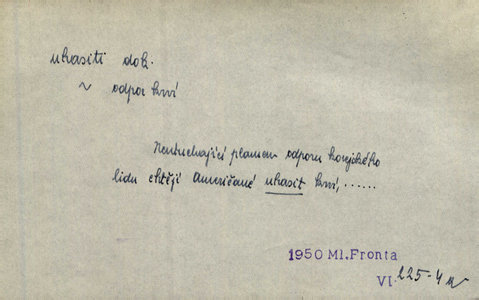 uhasiti dok.
~ odpor krví
Neutuchající plamen odporu korejského
lidu chtějí Američané uhasit krví, ......
1950 Ml. Fronta
VI. 225-4